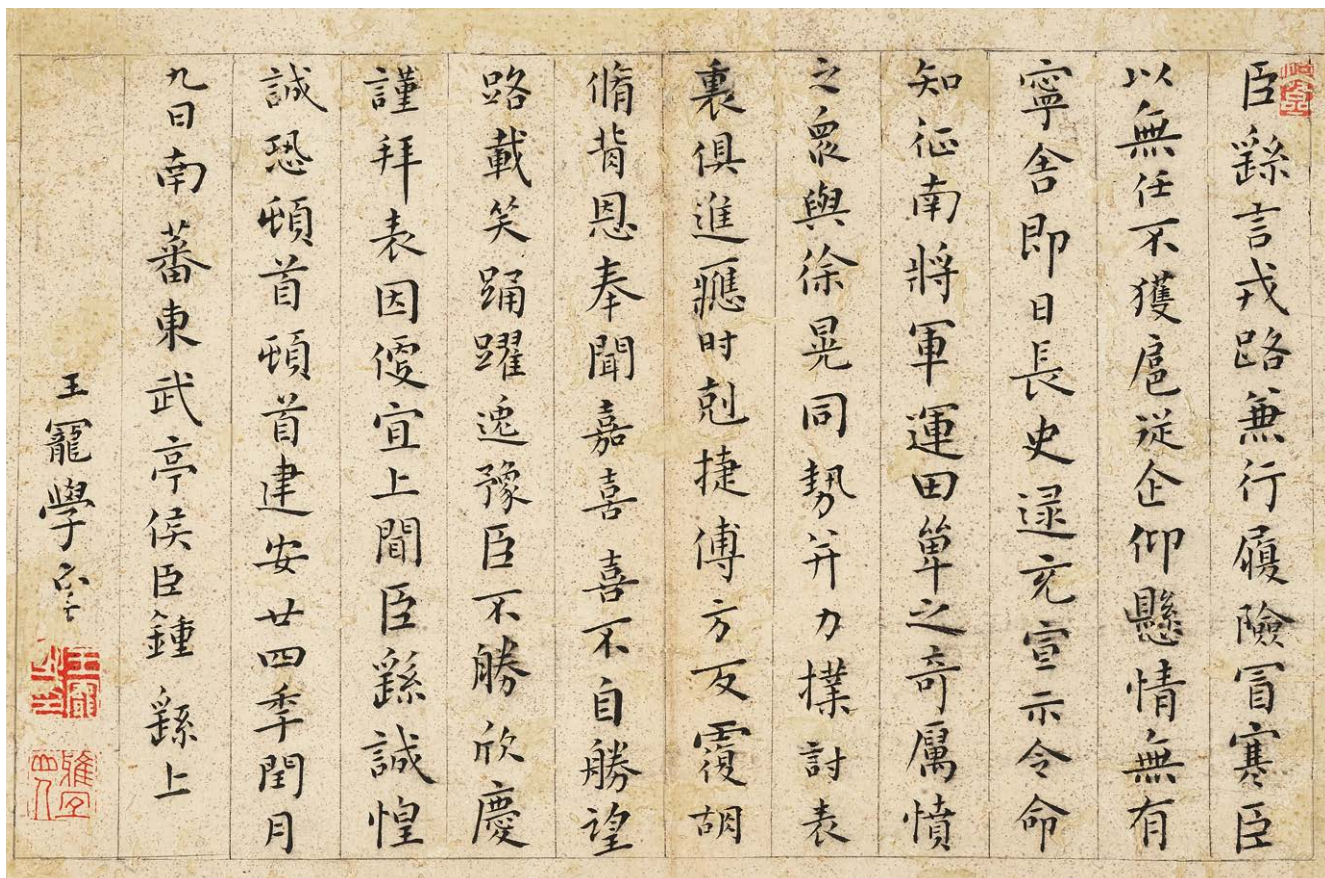 臣繇言戎路兼行履險冒寒臣
以無任不獲扈從企仰懸情無有
寧舍即日長史逯充宣示令命
知征南將軍運田單之奇厲憤
之眾與徐晃同勢并力撲討表
裏俱進應時剋捷傅方反覆胡
脩背恩奉聞嘉喜喜不自勝望
路載笑踊躍逸豫臣不勝欣慶
謹拜表因便宜上聞臣繇誠惶
誠恐頓首頓首建安廿四年閏月
九日南蕃東武亭侯臣鍾繇上
王寵學書
王寵之印
雅宜山人